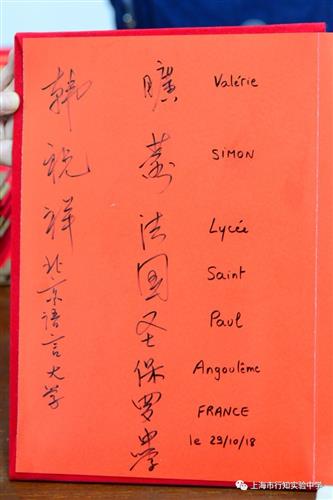 韩祝祥 北京语言大学
曠 法國圣保罗學
Valérie
SIMON
Lycée
Saint
Paul
Angoulême
FRANCE
le 29/10/18
上海市行知实验中学